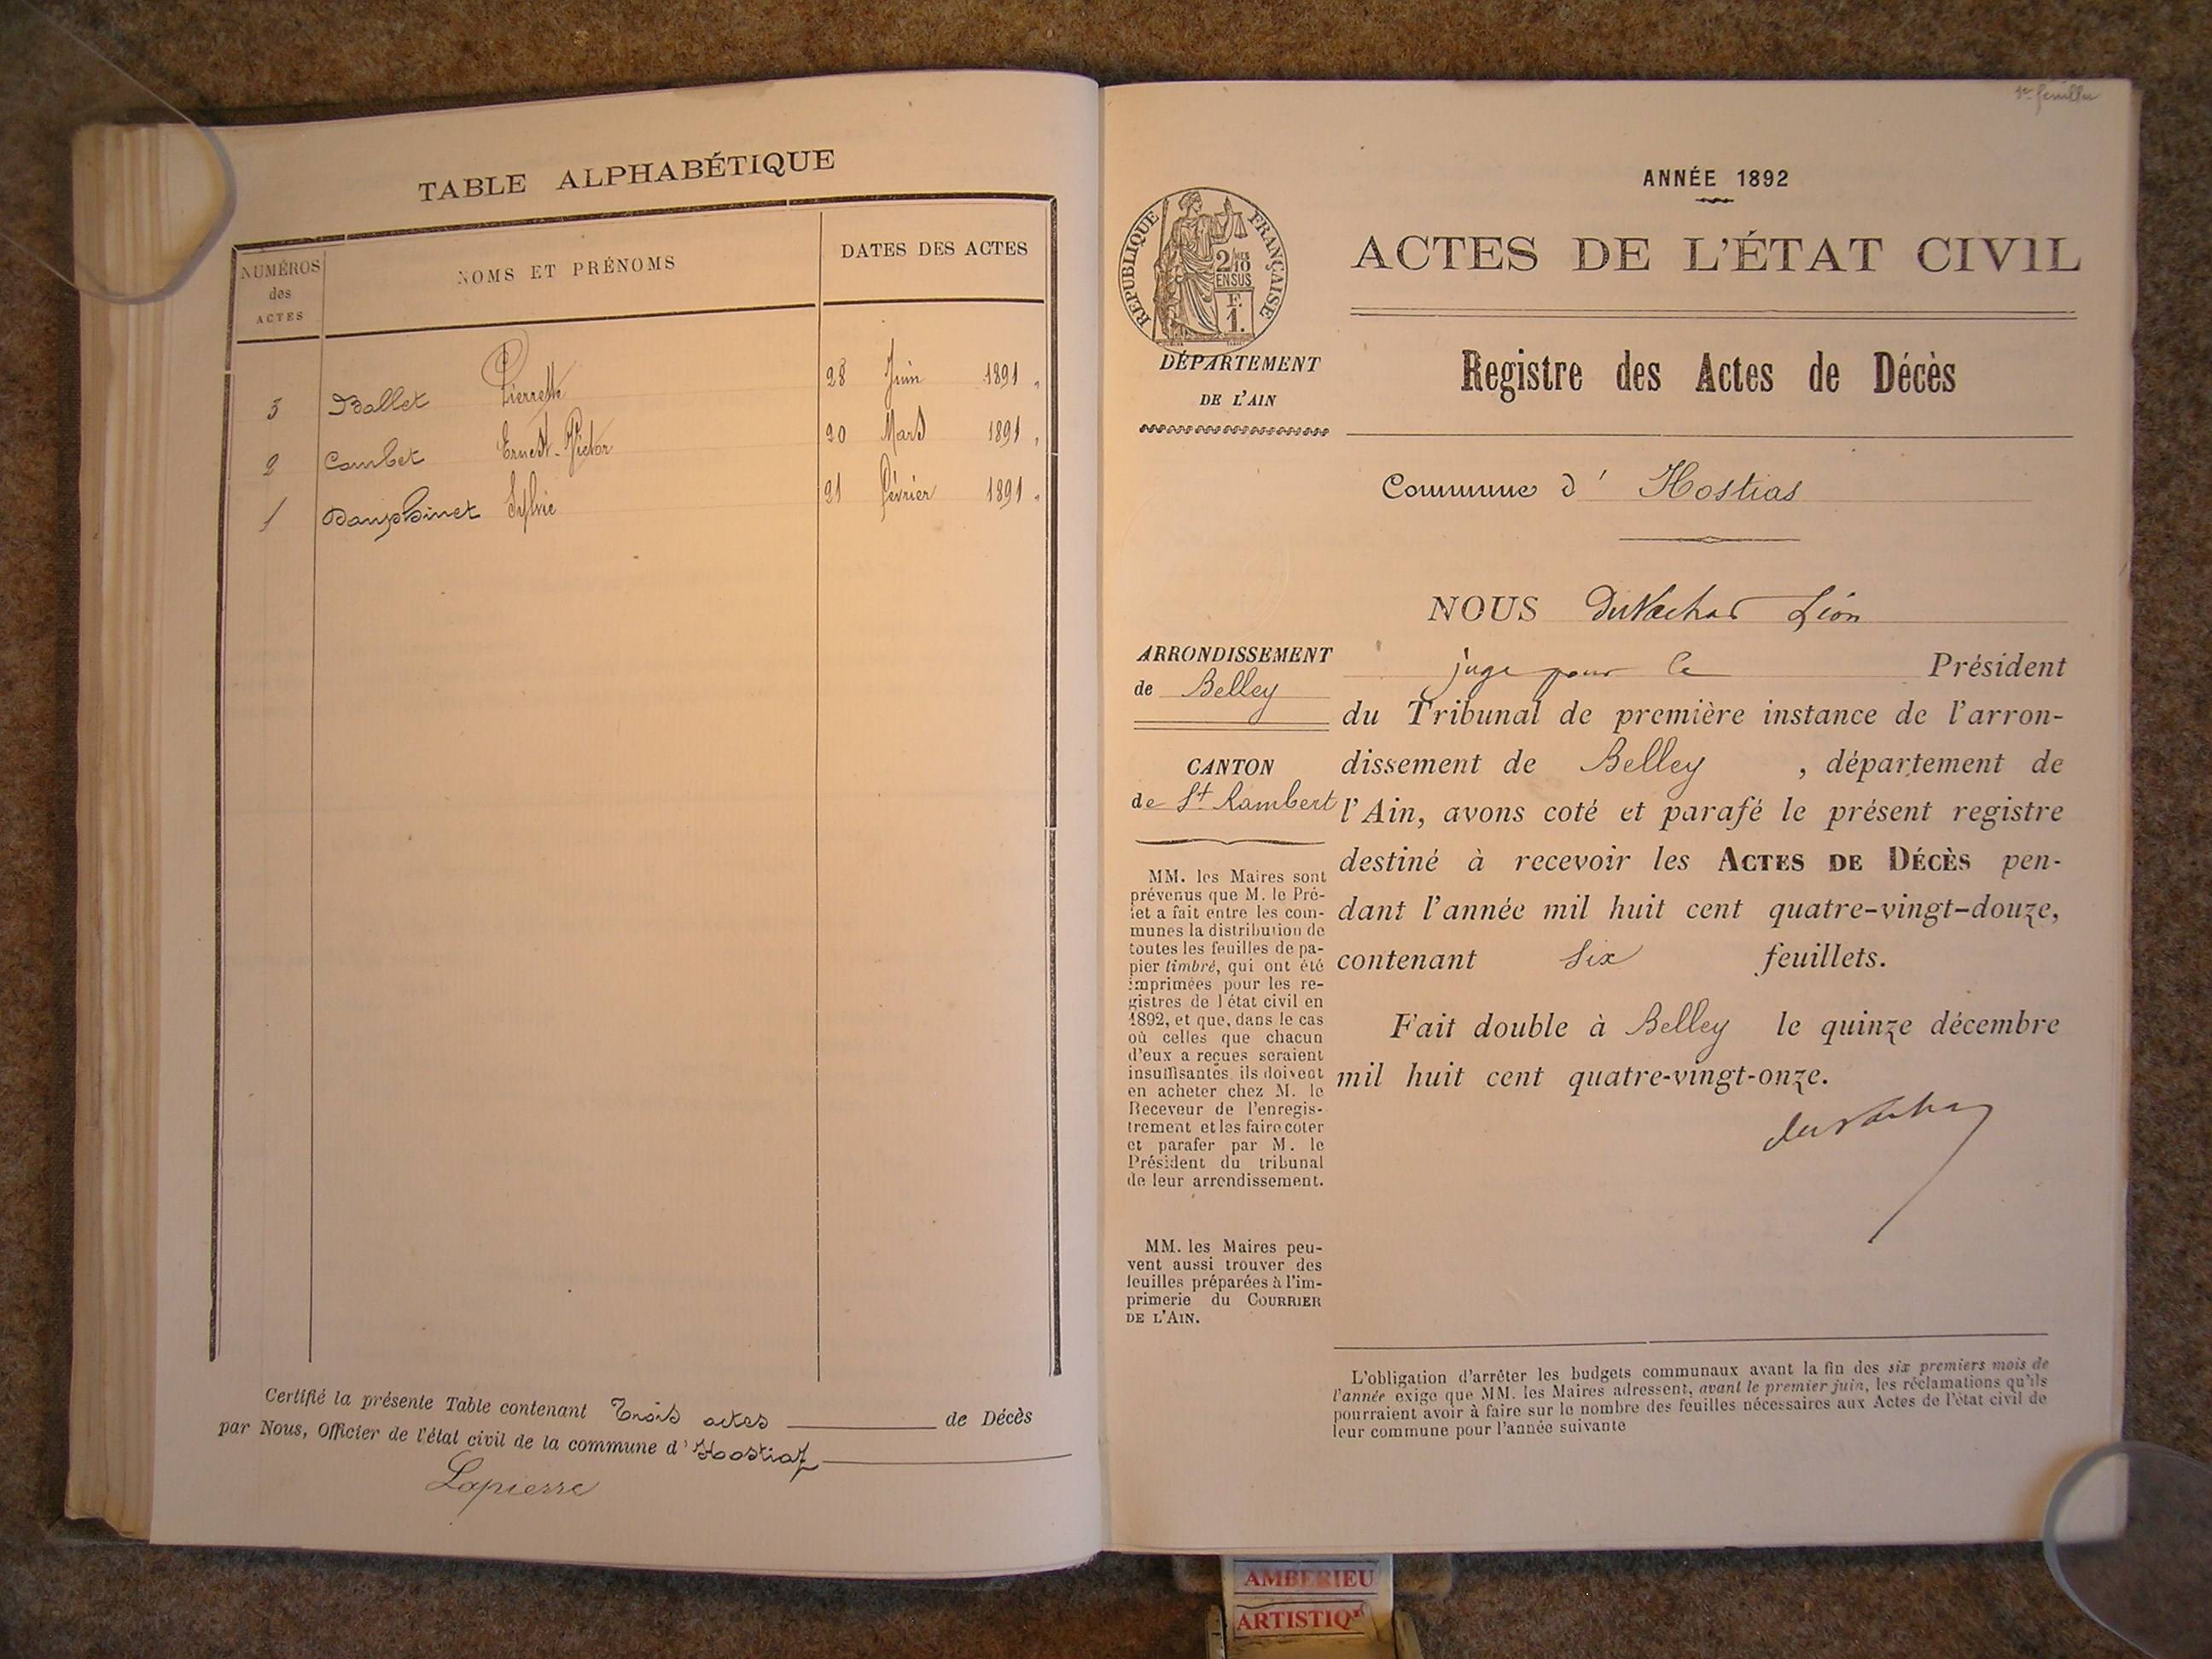 TABLE ALPHABÉTIQUE
NUMÉROS des ACTES NOMS ET PRÉNOMS DATES DES ACTES
3 Ballet Pierrette 28 Juin 1891 "
2 Combet Ernest-Victor 20 Mars 1891 "
1 Dauphinet Sylvie 21 Février 1891 "
Certifié la présente Table contenant Trois actes de Décès
par Nous, Officier de l'état civil de la commune d' Hostiaz
Lapierre
1er feuillet
ANNÉE 1892
RÉPUBLIQUE FRANÇAISE
2/10 MES
EN SUS
F.
1.
ACTES DE L'ÉTAT CIVIL
DÉPARTEMENT
DE L'AIN
Registre des Actes de Décès
Commune d' Hostias
NOUS Léon
juge pour le Président
du Tribunal de première instance de l'arron-
dissement de Belley , département de
l'Ain, avons coté et parafé le présent registre
destiné à recevoir les ACTES DE DÉCÈS pen-
dant l'année mil huit cent quatre-vingt-douze,
contenant Six feuillets.
Fait double à Belley le quinze décembre
mil huit cent quatre-vingt-onze.
ARRONDISSEMENT
de Belley
CANTON
de St Rambert
MM. les Maires sont
prévenus que M. le Pré-
fet a fait entre les com-
munes la distribution de
toutes les feuilles de pa-
pier timbré, qui ont été
imprimées pour les re-
gistres de l'état civil en
1892, et que, dans le cas
où celles que chacun
d'eux a reçues seraient
insuffisantes, ils doivent
en acheter chez M. le
Receveur de l'enregis-
trement et les faire coter
et parafer par M. le
Président du tribunal
de leur arrondissement.
MM. les Maires peu-
vent aussi trouver des
feuilles préparées à l'im-
primerie du COURRIER
DE L'AIN.
L'obligation d'arrêter les budgets communaux avant la fin des six premiers mois de
l'année exige que MM. les Maires adressent, avant le premier juin, les réclamations qu'ils
pourraient avoir à faire sur le nombre des feuilles nécessaires aux Actes de l'état civil de
leur commune pour l'année suivante
AMBERIEU
ARTISTIQ